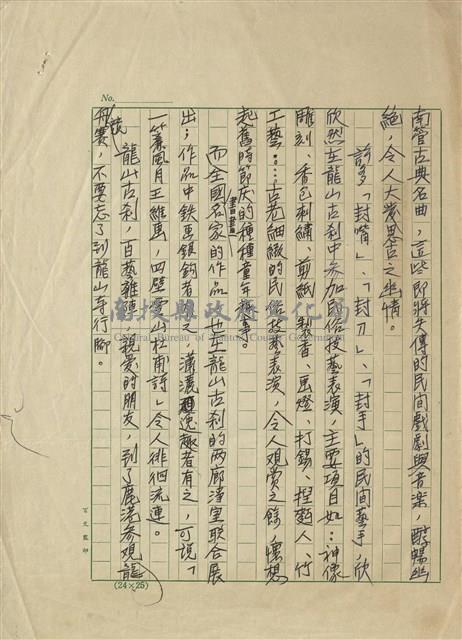 No.
南管古典名曲，這些即將失傳的民間戲劇與音樂，酣暢幽
絕，令人大發思古之幽情。
許多「封嘴」、「封刀」、「封手」的民間藝手，欣
欣然在龍山古剎中參加民俗技藝表演，主要項目如：神像
雕刻、香包刺繡、剪紙、製香、畫燈、打錫、捏麵人、竹
工藝……古老細緻的民俗技藝表演，令人觀賞之餘，懷想
起舊時節慶的種種童年舊事。
而全國名家的書畫作品也在龍山古剎的兩廊淨室聯合展
出；作品中鉄畫銀鈎者有之，瀟灑逸趣者有之，可說「
一簾風月王維畫，四壁雲山杜甫詩」令人徘徊流連。
龍山古剎，百藝雜陳，親愛的朋友，到了鹿港參觀龍
舟競賽，不要忘了到龍山寺行腳。
(24×25)
南投縣政府文化局
Cultural Bureau of Nantou County Government